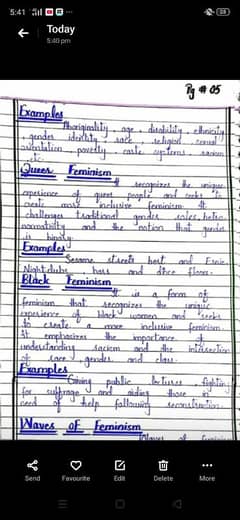 5:41
Today
5:40 pm
Pg # 05
Examples
Aboriginality, age, disability, ethnicity
, gender identity, race, religion, sexual
orientation, poverty, caste systems, racism
etc.
Queer Feminism
It recognizes the unique
experience of queer people and seeks to
create more inclusive feminism. It
challenges traditional gender roles, hetro
normativity and the notion that gender
is binary.
Examples
Sesame streets hert and Ernie
Nightclubs, bars and dance floors.
Black Feminism
It is a form of
feminism that recognizes the unique
experience of black women and seeks
to create a more inclusive feminism.
It emphasizes the importance of
understanding racism and the intersection
of race, gender and class.
Examples
Giving public lectures, fighting
for suffrage and aiding those in
need of help following reconstruction.
Waves of Feminism
Waves of feminism
Send
Favourite
Edit
Delete
More